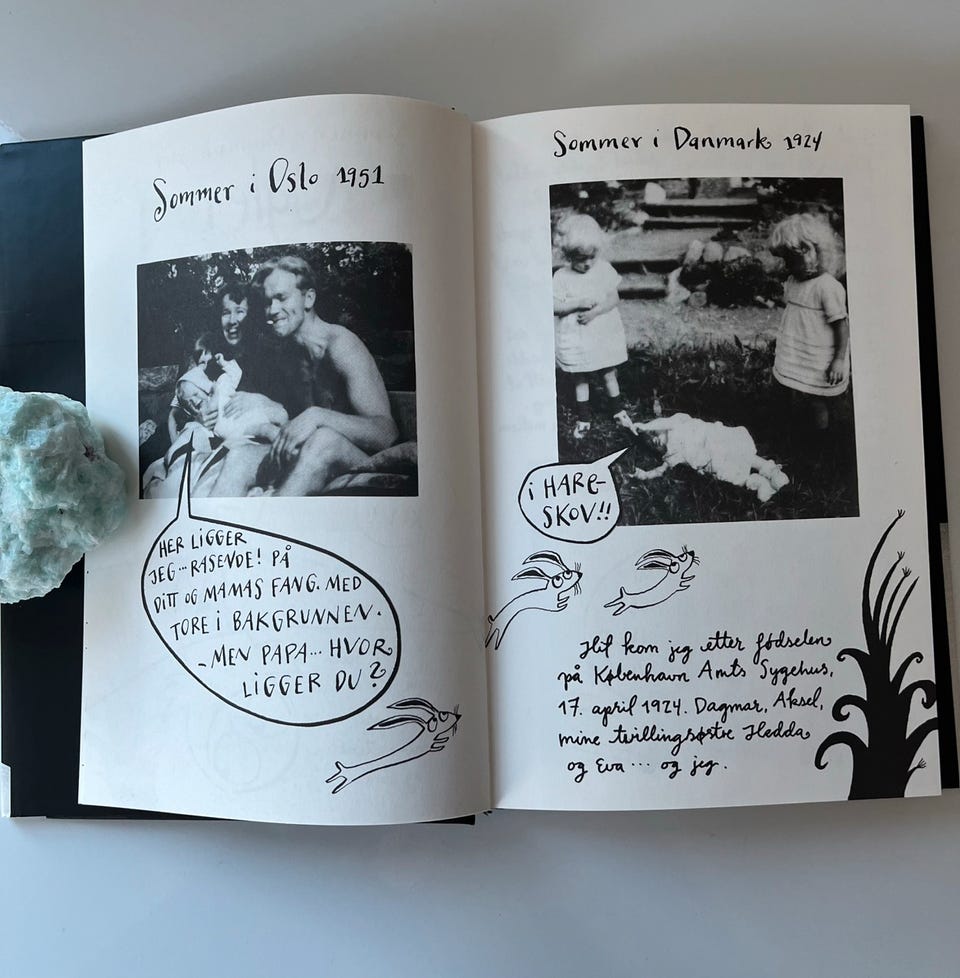 Sommer i Oslo 1951
HER LIGGER
JEG... RASENDE! PÅ
DITT OG MAMAS FANG. MED
TORE I BAKGRUNNEN.
- MEN PAPA... HVOR
LIGGER DU?
Sommer i Danmark 1924
i HARE-
SKOV!!
Hit kom jeg etter fødselen
på København Amts Sygehus,
17. april 1924. Dagmar, Aksel,
mine tvillingsøstre Hedda
og Eva... og jeg.